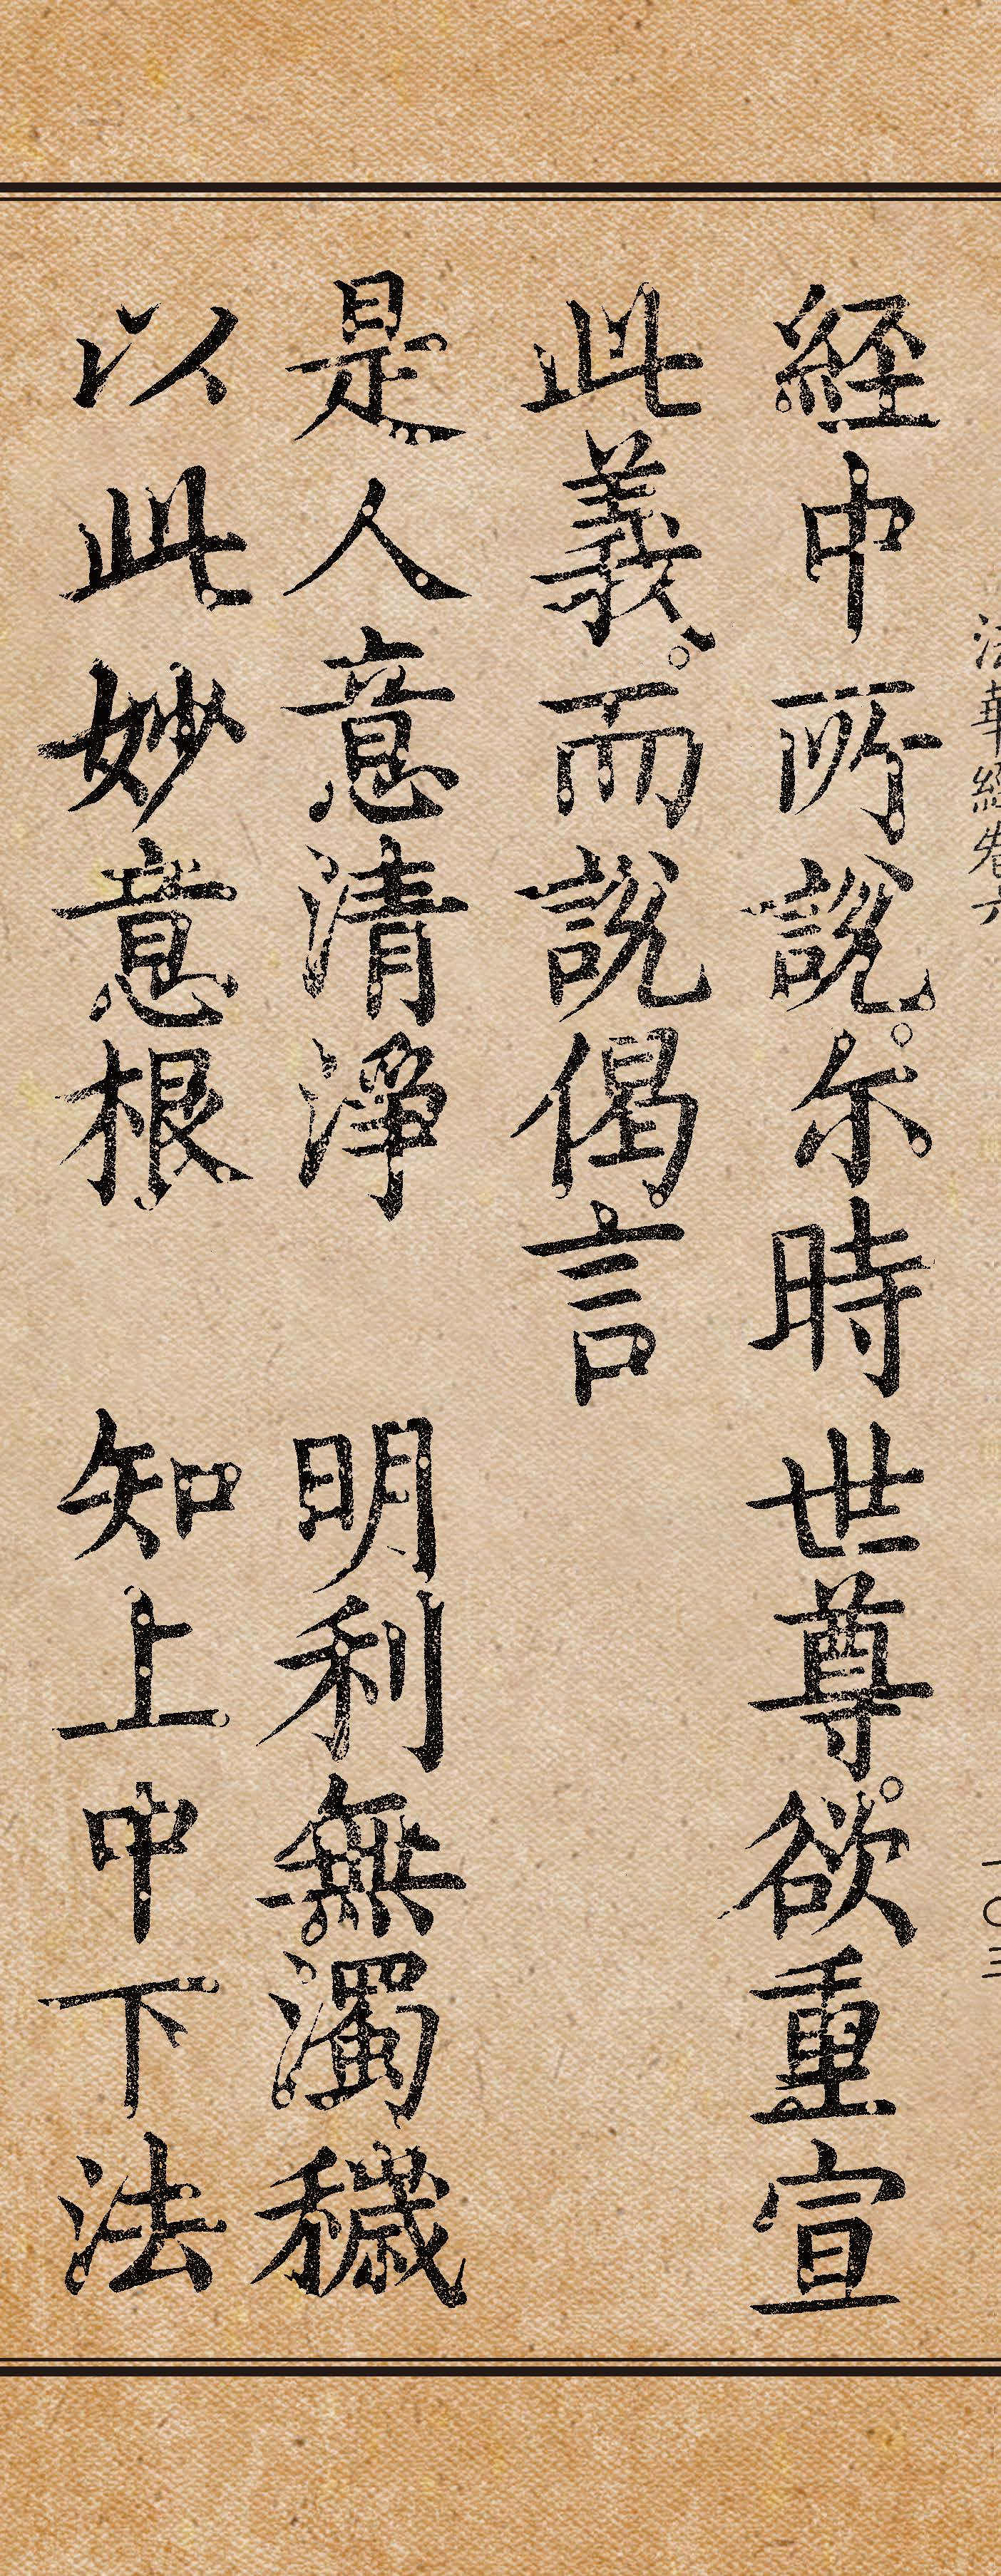 法華經卷六 一〇三
経中所說。尓時世尊。欲重宣
此義。而說偈言
是人意清淨 明利無濁穢
以此妙意根 知上中下法